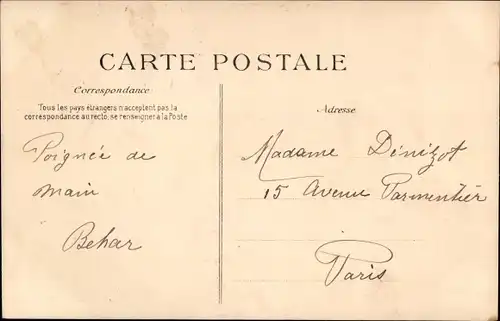 CARTE POSTALE
Correspondance
Tous les pays étrangers n'acceptent pas la
correspondance au recto, se renseigner à la Poste
Poignée de
main
Behar
Adresse
Madame Dénizot
15 Avenue Parmentier
Paris